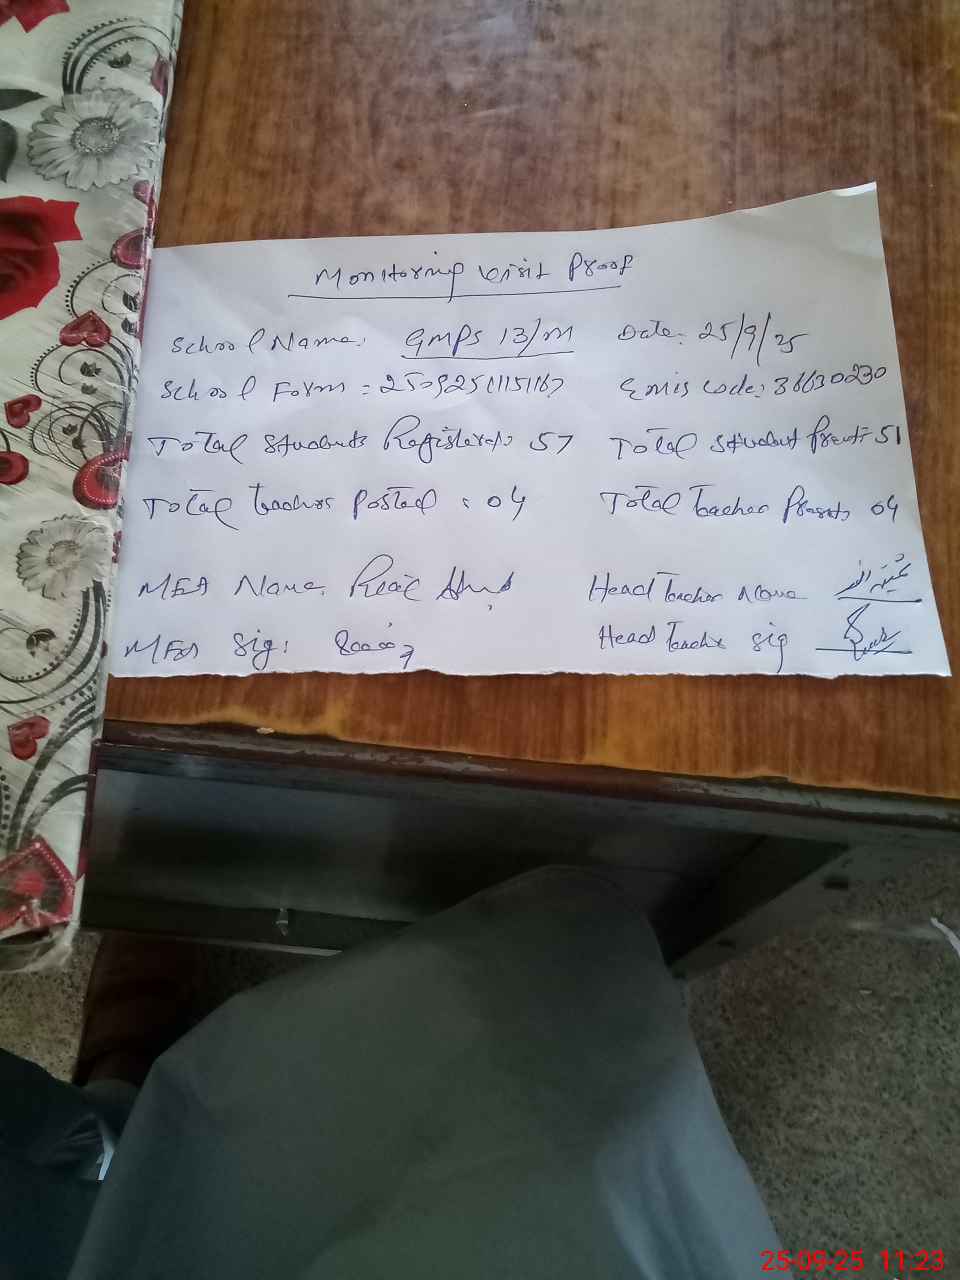 Monitoring Visit Proof
School Name: GMPS 13/M Date: 25/9/25
School Form = 25092511151167 Emis Code: 36630230
Total Students Registered: 57 Total Student Present: 51
Total Teachers Posted : 04 Total Teacher Present: 04
MEA Name: Head Teacher Name
MEA Sig: Head Teacher Sig
25-09-25 11:23